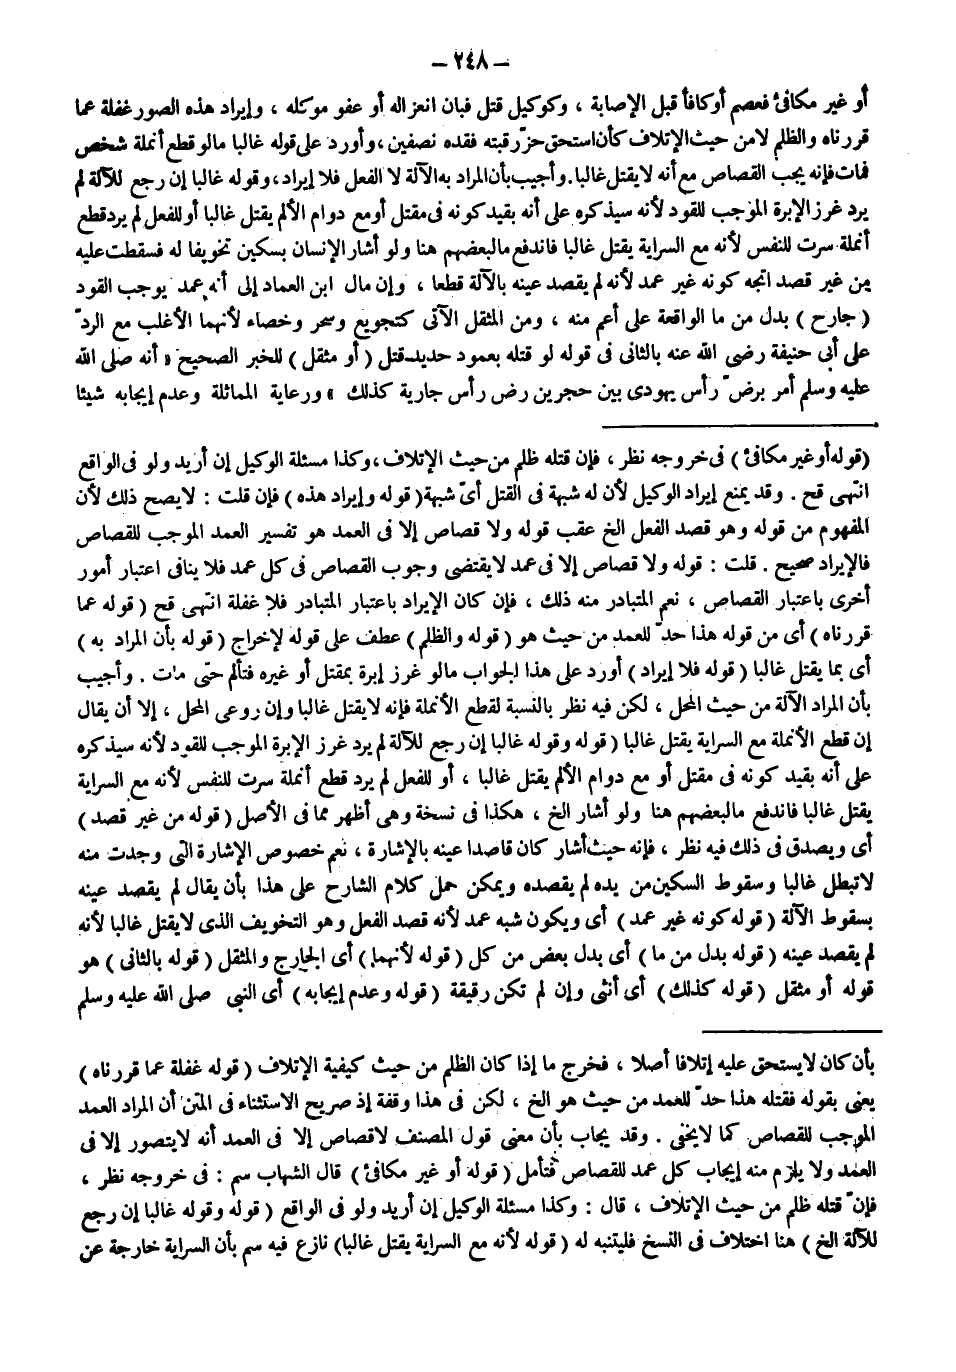 – ٢٤٨ –
أو غير مكافئ فعصم أوكافأ قبل الإصابة ، وكوكيل قتل فبان انعزاله أو عفو موكله ، وإيراد هذه الصور غفلة عما
قررناه والظلم لامن حيث الإتلاف كأن استحق حزّ رقبته فقده نصفين ، وأورد على قوله غالبا مالو قطع أنملة شخص
فمات فإنه يجب القصاص مع أنه لايقتل غالبا . وأجيب بأن المراد به الآلة لا الفعل فلا إيراد ، وقوله غالبا إن رجع للآلة لم
يرد غرز الإبرة الموجب للقود لأنه سيذكره على أنه بقيد كونه فى مقتل أومع دوام الألم يقتل غالبا أو للفعل لم يرد قطع
أنملة سرت للنفس لأنه مع السراية يقتل غالبا فاندفع مالبعضهم هنا ولو أشار الإنسان بسكين تخويفا له فسقطت عليه
من غير قصد اتجه كونه غير عمد لأنه لم يقصد عينه بالآلة قطعا ، وإن مال ابن العماد إلى أنه عمد يوجب القود
( جارح ) بدل من ما الواقعة على أعم منه ، ومن المثقل الآتى كتجويع وسحر وخصاء لأنهما الأغلب مع الردّ
على أبى حنيفة رضى الله عنه بالثانى فى قوله لو قتله بعمود حديد قتل ( أو مثقل ) للخبر الصحيح « أنه صلى الله
عليه وسلم أمر برضّ رأس يهودى بين حجرين رض رأس جارية كذلك » ورعاية المماثلة وعدم إيجابه شيئا
(قوله أو غير مكافئ ) فى خروجه نظر ، فإن قتله ظلم من حيث الإتلاف ، وكذا مسئلة الوكيل إن أريد ولو فى الواقع
انتهى قح . وقد يمنع إيراد الوكيل لأن له شبهة فى القتل أىّ شبهة ( قوله وإيراد هذه ) فإن قلت : لايصح ذلك لأن
المفهوم من قوله وهو قصد الفعل الخ عقب قوله ولا قصاص إلا فى العمد هو تفسير العمد الموجب للقصاص
فالإيراد صحيح . قلت : قوله ولا قصاص إلا فى عمد لايقتضى وجوب القصاص فى كل عمد فلا ينافى اعتبار أمور
أخرى باعتبار القصاص ، نعم المتبادر منه ذلك ، فإن كان الإيراد باعتبار المتبادر فلا غفلة انتهى قح ( قوله عما
قررناه ) أى من قوله هذا حدّ للعمد من حيث هو ( قوله والظلم ) عطف على قوله لإخراج ( قوله بأن المراد به )
أى بما يقتل غالبا ( قوله فلا إيراد ) أورد على هذا الجواب مالو غرز إبرة بمقتل أو غيره فتألم حتى مات . وأجيب
بأن المراد الآلة من حيث المحل ، لكن فيه نظر بالنسبة لقطع الأنملة فإنه لايقتل غالبا وإن روعى المحل ، إلا أن يقال
إن قطع الأنملة مع السراية يقتل غالبا ( قوله وقوله غالبا إن رجع للآلة لم يرد غرز الإبرة الموجب للقود لأنه سيذكره
على أنه بقيد كونه فى مقتل أو مع دوام الألم يقتل غالبا ، أو للفعل لم يرد قطع أنملة سرت للنفس لأنه مع السراية
يقتل غالبا فاندفع مالبعضهم هنا ولو أشار الخ ، هكذا فى نسخة وهى أظهر مما فى الأصل ( قوله من غير قصد )
أى ويصدق فى ذلك فيه نظر ، فإنه حيث أشار كان قاصدا عينه بالإشارة ، نعم خصوص الإشارة التى وجدت منه
لاتبطل غالبا وسقوط السكين من يده لم يقصده ويمكن حمل كلام الشارح على هذا بأن يقال لم يقصد عينه
بسقوط الآلة ( قوله كونه غير عمد ) أى ويكون شبه عمد لأنه قصد الفعل وهو التخويف الذى لايقتل غالبا لأنه
لم يقصد عينه ( قوله بدل من ما ) أى بدل بعض من كل ( قوله لأنهما ) أى الجارح والمثقل ( قوله بالثانى ) هو
قوله أو مثقل ( قوله كذلك ) أى أنثى وإن لم تكن رقيقة ( قوله وعدم إيجابه ) أى النبى صلى الله عليه وسلم
بأن كان لايستحق عليه إتلافا أصلا ، فخرج ما إذا كان الظلم من حيث كيفية الإتلاف ( قوله غفلة عما قررناه )
يعنى بقوله فقتله هذا حدّ للعمد من حيث هو الخ ، لكن فى هذا وقفة إذ صريح الاستثناء فى المتن أن المراد العمد
الموجب للقصاص كما لايخفى . وقد يجاب بأن معنى قول المصنف لاقصاص إلا فى العمد أنه لايتصور إلا فى
العمد ولا يلزم منه إيجاب كل عمد للقصاص فتأمل ( قوله أو غير مكافئ ) قال الشهاب سم : فى خروجه نظر ،
فإنّ قتله ظلم من حيث الإتلاف ، قال : وكذا مسئلة الوكيل إن أريد ولو فى الواقع ( قوله وقوله غالبا إن رجع
للآلة الخ ) هنا اختلاف فى النسخ فليتنبه له ( قوله لأنه مع السراية يقتل غالبا ) نازع فيه سم بأن السراية خارجة عن